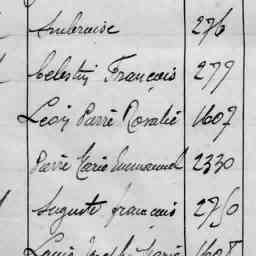 Ambroise 276
Celestin François 277
Léon Pierre Rosalie 1607
Pierre Marie Emmanuel 2330
Auguste françois 2750
Louis Joseph Marie 1608